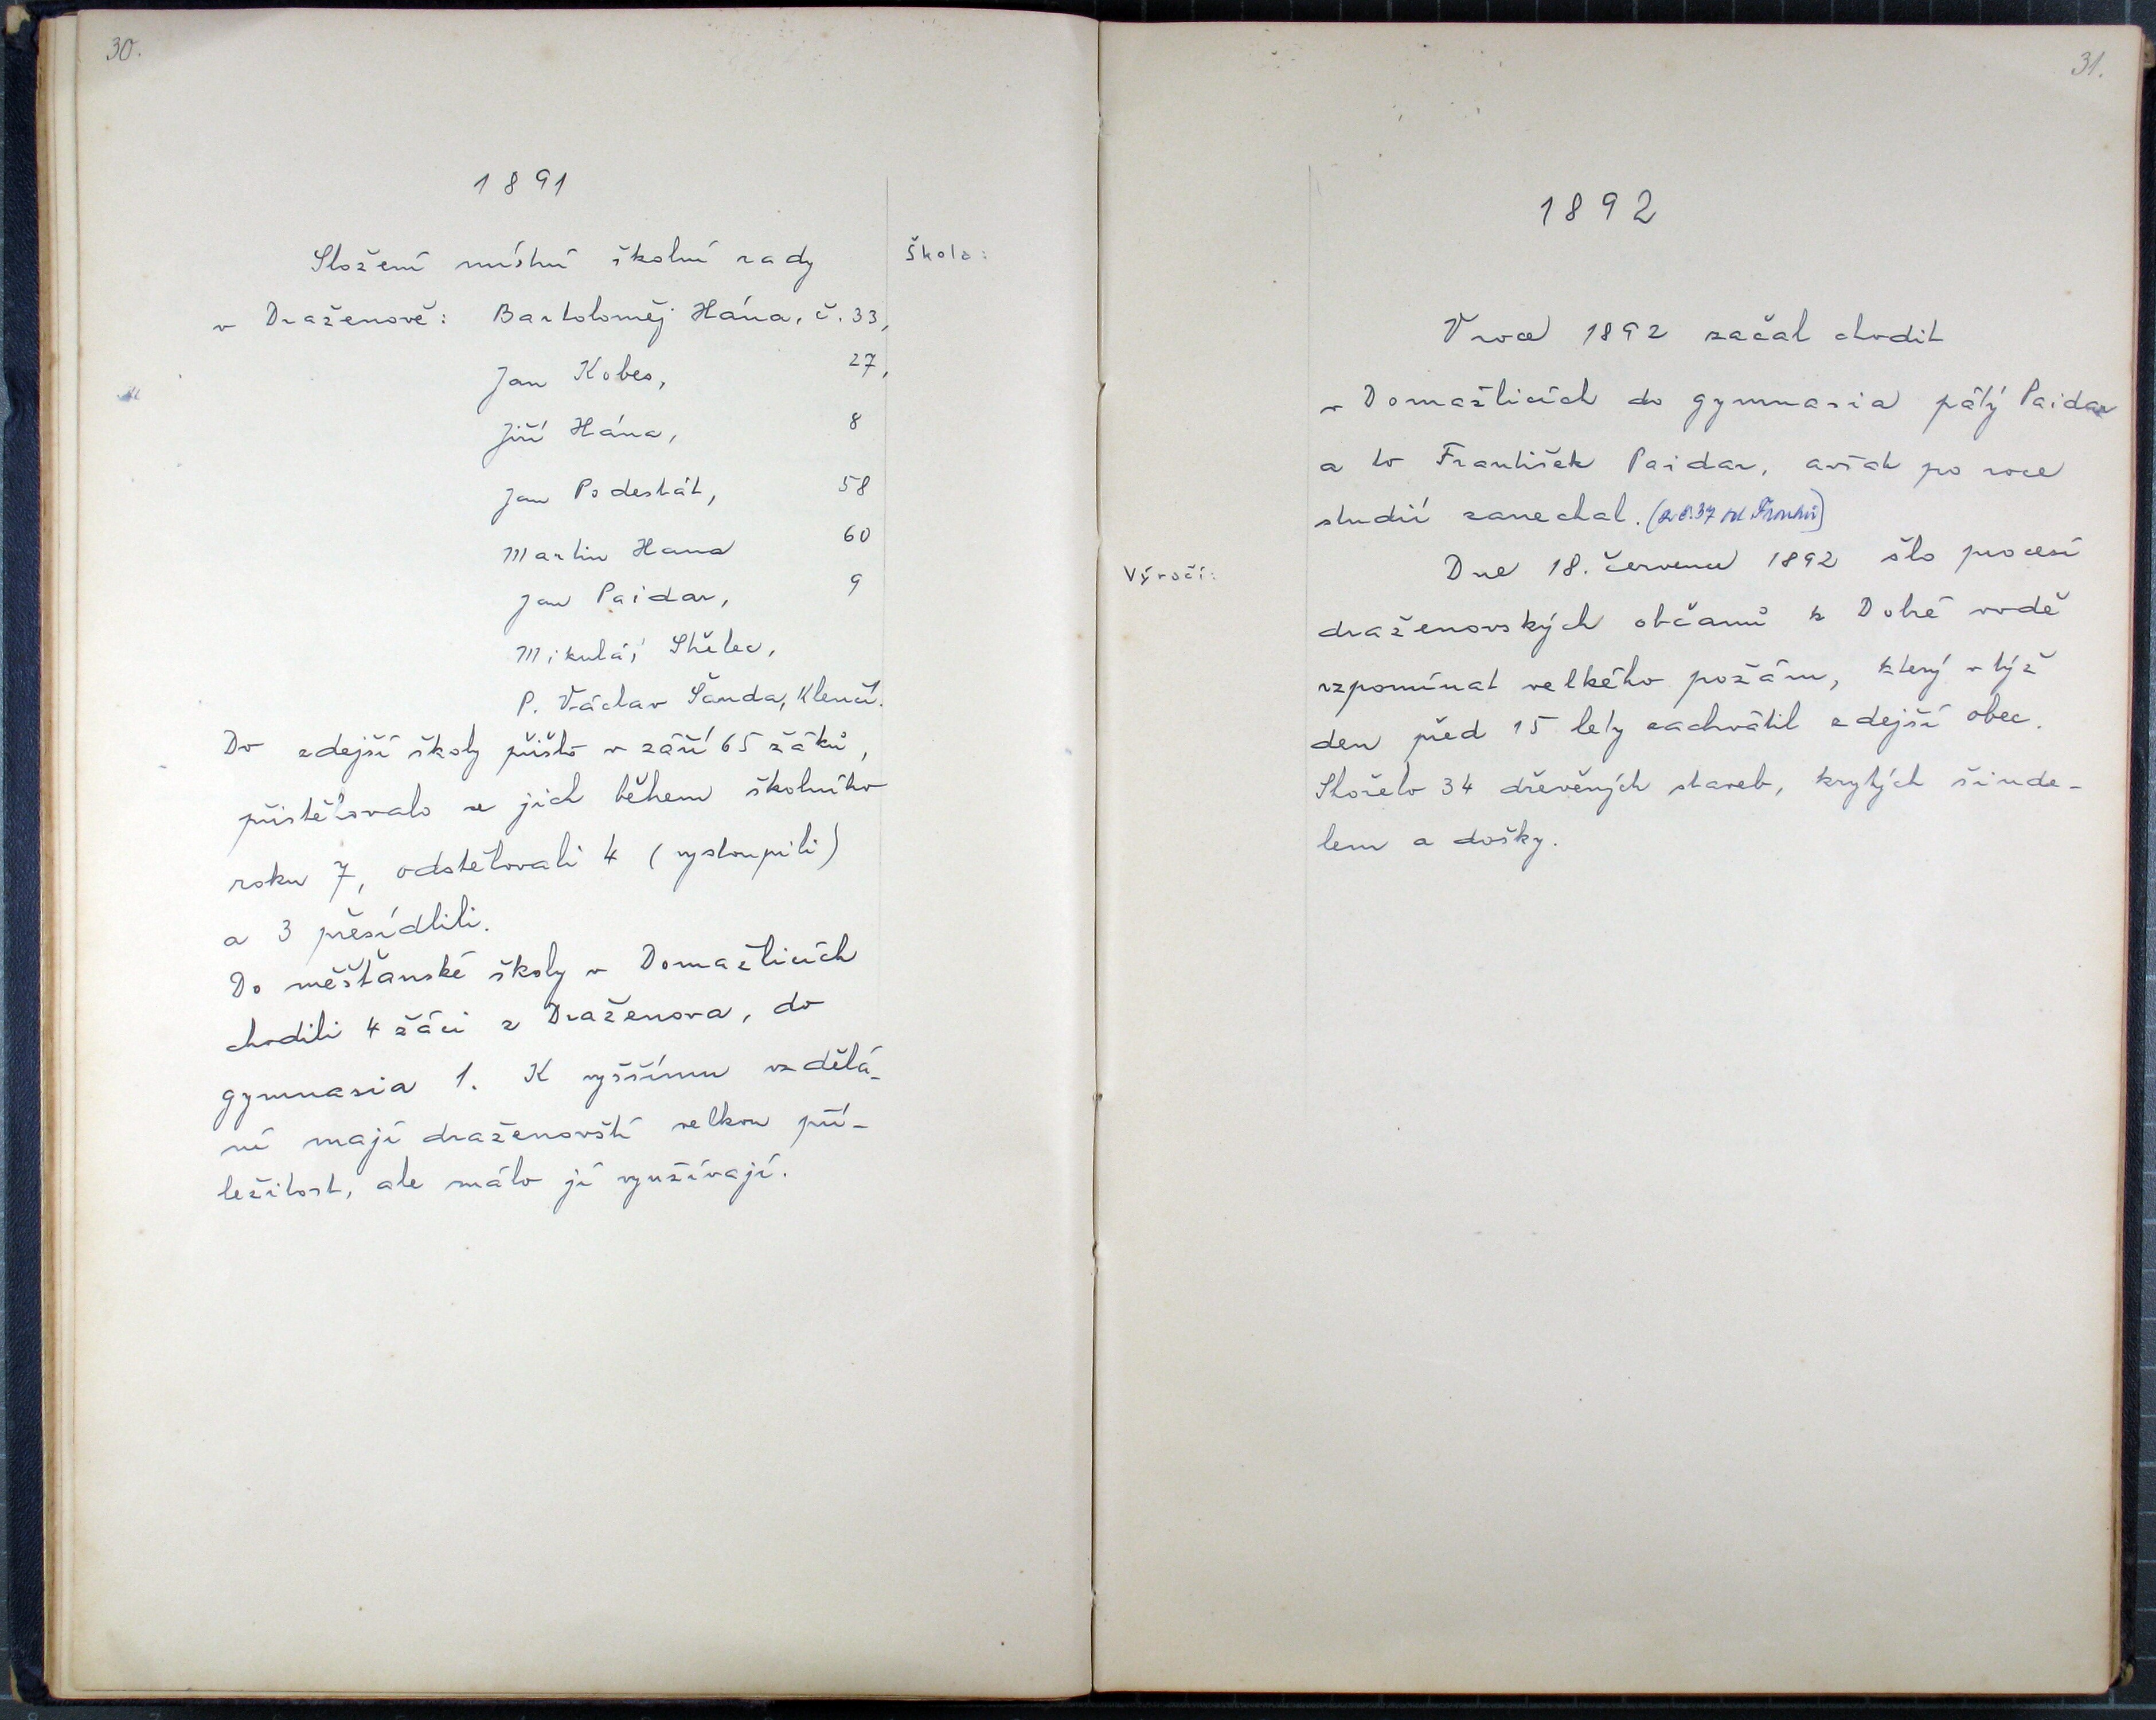 30.
1891
Škola:
Složení místní školní rady
v Draženově: Bartoloměj Hána, č. 33,
Jan Kobes, 27,
Jiří Hána, 8
Jan Podestát, 58
Martin Hana 60
Jan Paidar, 9
Mikuláš Střelec,
P. Václav Šanda, Klenčí.
Do zdejší školy přišlo v září 65 žáků,
přistěhovalo se jich během školního
roku 7, odstěhovali 4 (vystoupili)
a 3 přesídlili.
Do měšťanské školy v Domažlicích
chodili 4 žáci z Draženova, do
gymnasia 1. K vyššímu vzdělá-
ní mají draženovští velkou pří-
ležitost, ale málo jí využívají.
31.
1892
V roce 1892 začal chodit
v Domažlicích do gymnasia pátý Paidar
a to František Paidar, avšak po roce
studií zanechal. (z č. 37 od
Výročí:
Dne 18. července 1892 šlo procesí
draženovských občanů k Dobré vodě
vzpomínat velkého požáru, který v týž
den před 15 lety zachvátil zdejší obec.
Shořelo 34 dřevěných staveb, krytých šinde-
lem a došky.